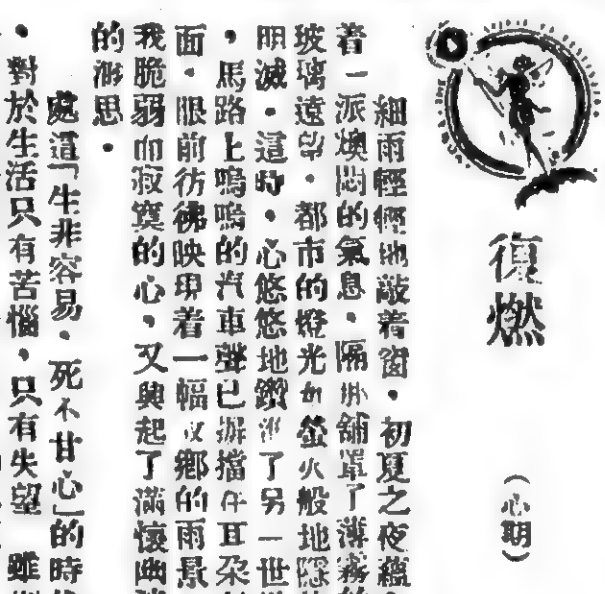 復燃
（心期）
細雨輕輕地敲着窗。初夏之夜蘊
着一派燠悶的氣息。隔掛舖罩了薄霧的
玻璃遠望。都市的燈光如螢火般地隱
明滅。這時。心悠悠地鑽了另一世
。馬路上嗚嗚的汽車聲已摒擋在耳朵
面。眼前彷彿映現着一幅故鄉的雨景
我脆弱而寂寞的心，又興起了滿懷幽
的遐思。
處這「生非容易。死不甘心」的時
。對於生活只有苦惱，只有失望 雖